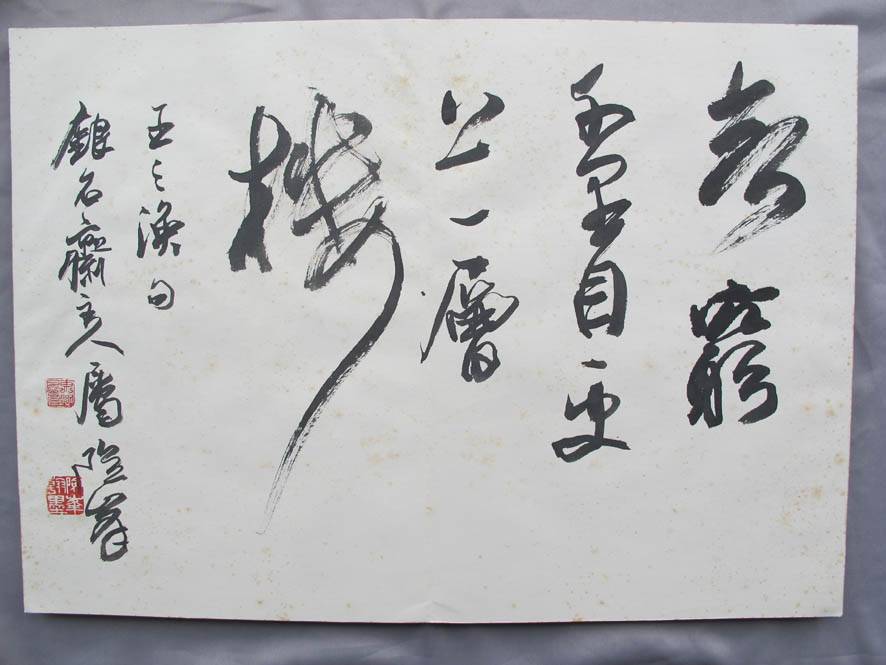 欲窮
千里目更
上一層
樓
王之渙句
名齋主人屬 險峯